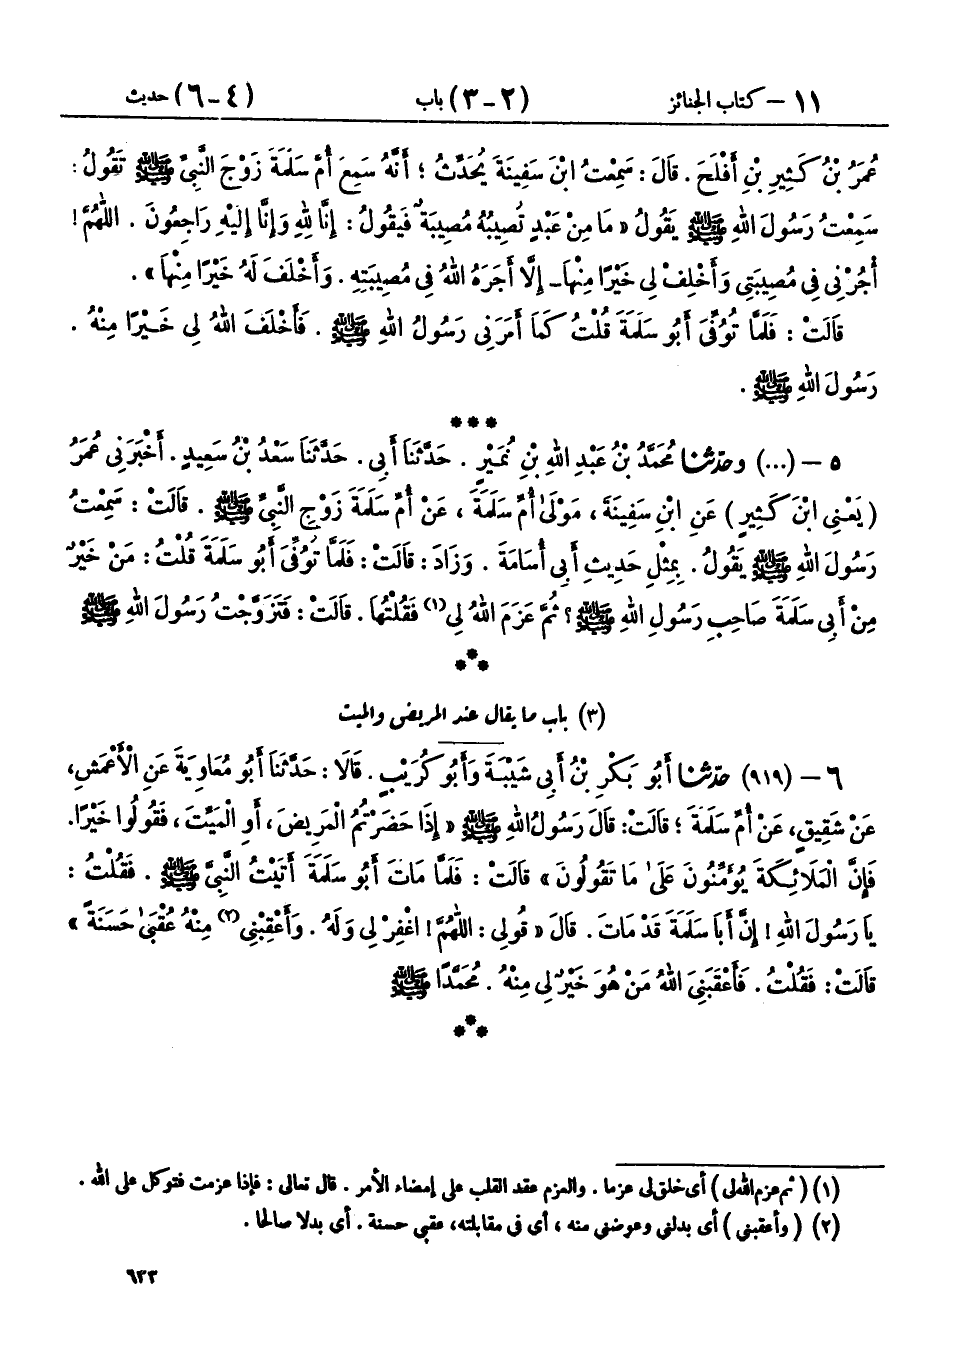 ١١ – كتاب الجنائز (٢ – ٣) باب (٤ – ٦) حديث
عُمَرُ بْنُ كَثِيرِ بْنِ أَفْلَحَ . قَالَ : سَمِعْتُ ابْنَ سَفِينَةَ يُحَدِّثُ ؛ أَنَّهُ سَمِعَ أُمَّ سَلَمَةَ زَوْجَ النَّبِيِّ ﷺ تَقُولُ :
سَمِعْتُ رَسُولَ اللهِ ﷺ يَقُولُ « مَا مِنْ عَبْدٍ تُصِيبُهُ مُصِيبَةٌ فَيَقُولُ : إِنَّا لِلهِ وَإِنَّا إِلَيْهِ رَاجِعُونَ . اللَّهُمَّ !
أْجُرْنِي فِي مُصِيبَتِي وَأَخْلِفْ لِي خَيْرًا مِنْهَا – إِلَّا أَجَرَهُ اللهُ فِي مُصِيبَتِهِ . وَأَخْلَفَ لَهُ خَيْرًا مِنْهَا » .
قَالَتْ : فَلَمَّا تُوُفِّيَ أَبُو سَلَمَةَ قُلْتُ كَمَا أَمَرَنِي رَسُولُ اللهِ ﷺ . فَأَخْلَفَ اللهُ لِي خَيْرًا مِنْهُ .
رَسُولَ اللهِ ﷺ .
***
٥ – (...) وحَدَّثَنَا مُحَمَّدُ بْنُ عَبْدِ اللهِ بْنِ نُمَيْرٍ . حَدَّثَنَا أَبِي . حَدَّثَنَا سَعْدُ بْنُ سَعِيدٍ . أَخْبَرَنِي عُمَرُ
( يَعْنِي ابْنَ كَثِيرٍ ) عَنِ ابْنِ سَفِينَةَ ، مَوْلَى أُمِّ سَلَمَةَ ، عَنْ أُمِّ سَلَمَةَ زَوْجِ النَّبِيِّ ﷺ . قَالَتْ : سَمِعْتُ
رَسُولَ اللهِ ﷺ يَقُولُ . بِمِثْلِ حَدِيثِ أَبِي أُسَامَةَ . وَزَادَ : قَالَتْ : فَلَمَّا تُوُفِّيَ أَبُو سَلَمَةَ قُلْتُ : مَنْ خَيْرٌ
مِنْ أَبِي سَلَمَةَ صَاحِبِ رَسُولِ اللهِ ﷺ ؟ ثُمَّ عَزَمَ اللهُ لِي(١) فَقُلْتُهَا . قَالَتْ : فَتَزَوَّجْتُ رَسُولَ اللهِ ﷺ
***
(٣) باب ما يقال عند المريض والميت
٦ – (٩١٩) حَدَّثَنَا أَبُو بَكْرِ بْنُ أَبِي شَيْبَةَ وَأَبُو كُرَيْبٍ . قَالَا : حَدَّثَنَا أَبُو مُعَاوِيَةَ عَنِ الْأَعْمَشِ ،
عَنْ شَقِيقٍ ، عَنْ أُمِّ سَلَمَةَ ؛ قَالَتْ : قَالَ رَسُولُ اللهِ ﷺ « إِذَا حَضَرْتُمُ الْمَرِيضَ ، أَوِ الْمَيِّتَ ، فَقُولُوا خَيْرًا .
فَإِنَّ الْمَلَائِكَةَ يُؤَمِّنُونَ عَلَى مَا تَقُولُونَ » قَالَتْ : فَلَمَّا مَاتَ أَبُو سَلَمَةَ أَتَيْتُ النَّبِيَّ ﷺ . فَقُلْتُ :
يَا رَسُولَ اللهِ ! إِنَّ أَبَا سَلَمَةَ قَدْ مَاتَ . قَالَ « قُولِي : اللَّهُمَّ ! اغْفِرْ لِي وَلَهُ . وَأَعْقِبْنِي(٢) مِنْهُ عُقْبَى حَسَنَةً »
قَالَتْ : فَقُلْتُ . فَأَعْقَبَنِيَ اللهُ مَنْ هُوَ خَيْرٌ لِي مِنْهُ . مُحَمَّدًا ﷺ
***
(١) ( ثم عزم الله لى ) أى خلق لى عزما . والعزم عقد القلب على إمضاء الأمر . قال تعالى : فإذا عزمت فتوكل على الله .
(٢) ( وأعقبني ) أى بدلني وعوضني منه ، أى فى مقابلته، عقبى حسنة . أى بدلا صالحا .
٦٣٣